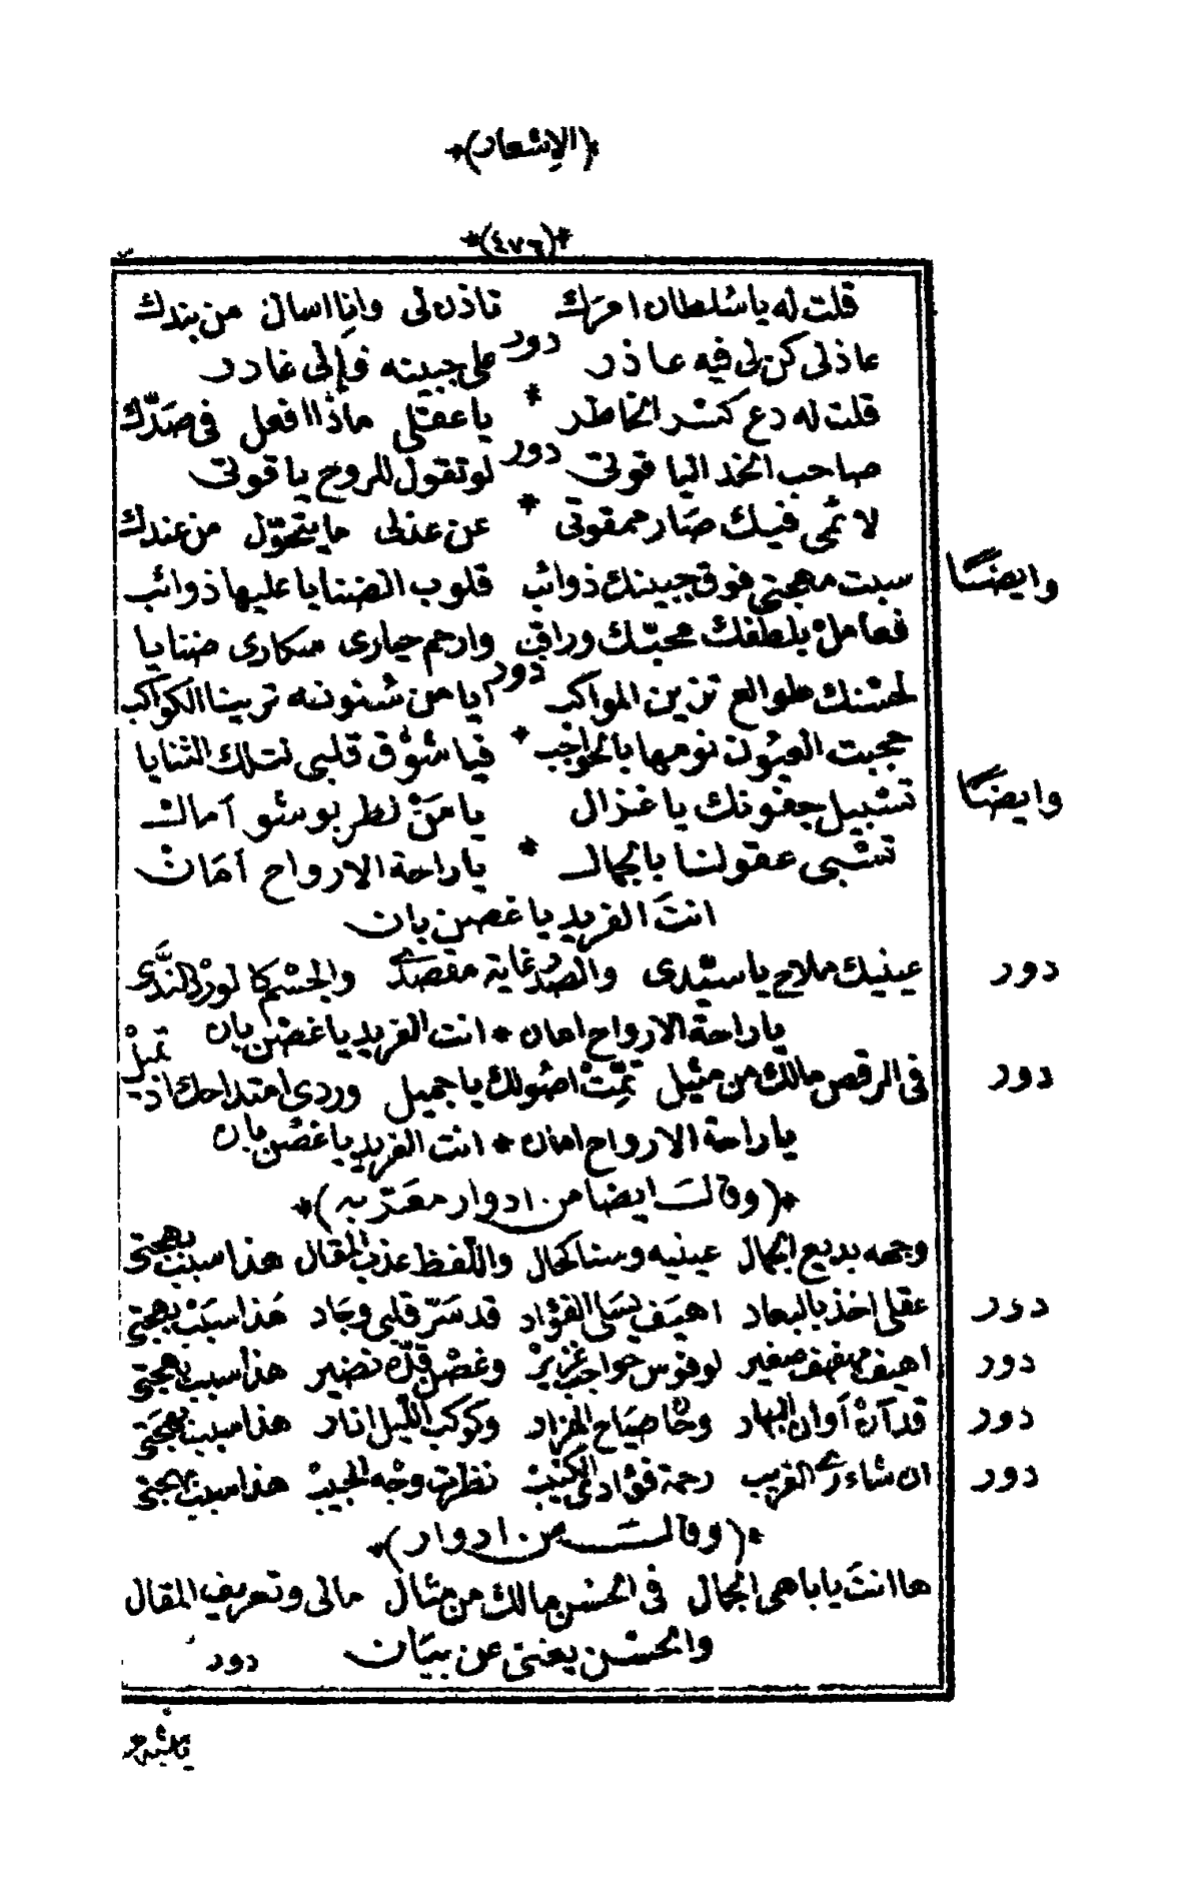 *(الاشعار)*
*(٤٧٦)*
قلت له يا سلطان امرك تاذن لى وانا اسال من بندك
دور
عاذلى كن لى فيه عاذر على جبينه فإلى غادر
قلت له دع كسر الخاطر * يا عقلى ماذا افعل فى صدّك
دور
صاحب الخد اليا قوتى لو تقول للروح يا قوتى
لا ئمى فيك صار ممقوتى * عن عذلى ما يتحوّل من عندك
وايضًا سبت مهجتى فوق جبينك ذوائب قلوب الضنايا عليها ذوائب
فعامل بلطفك محبّك وراقى وارحم حيارى سكارى ضنايا
دور
لحسنك طوالع تزين المواكب ايا من شنونه تربينا الكواكب
حجبت العيون نومها بالحواجب * فيا شوق قلبى لتلك الثنايا
وايضًا تسبيل جفونك يا غزال يا مَنْ نظر بوسنو آمال
تسبى عقولنا بالجمال * يا راحة الارواح آمَان
انتَ الفريد يا غصن بان
دور عينيك ملاح يا سيّدى والصدر غاية مقصدى والجسم كالورد النَّدى
يا راحة الارواح امان * انت الفريد يا غصن بان
دور فى الرقص مالك من مثيل تمّت اصولك يا جميل وردى امتداحك اذ يميلْ
يا راحة الارواح امان * انت الفريد يا غصن بان
*(وقالت ايضا من ادوار معرّبه)*
وجهه بديع الجمال عينيه وسنا كحال واللّفظ عذب المقال هذا سبب بهجتى
دور عقلى اخذ بالبعاد اهيف بسَلى الفؤاد قد سَرّ قلبى وجاد هَذا سبَب بهجتى
دور اهيف مهفهف صغير لو قوس حواجب غزير وغصن قدّه نضير هذا سبب بهجتى
دور قد آن أوان البهار وحان صيَاح الهزار وكوكب اللّيل انار هذا سبب بهجتى
دور ان شاء ربى القريب رحمة فؤادى الكئيب نظرت وجه الحبيب هذا سبب بهجتى
*(وقالت من ادوار)*
ها انتَ يا باهى الجمال فى الحسن مالك من مثال مالى وتعريف المقال
والحسن يغنى عن بيَان دور